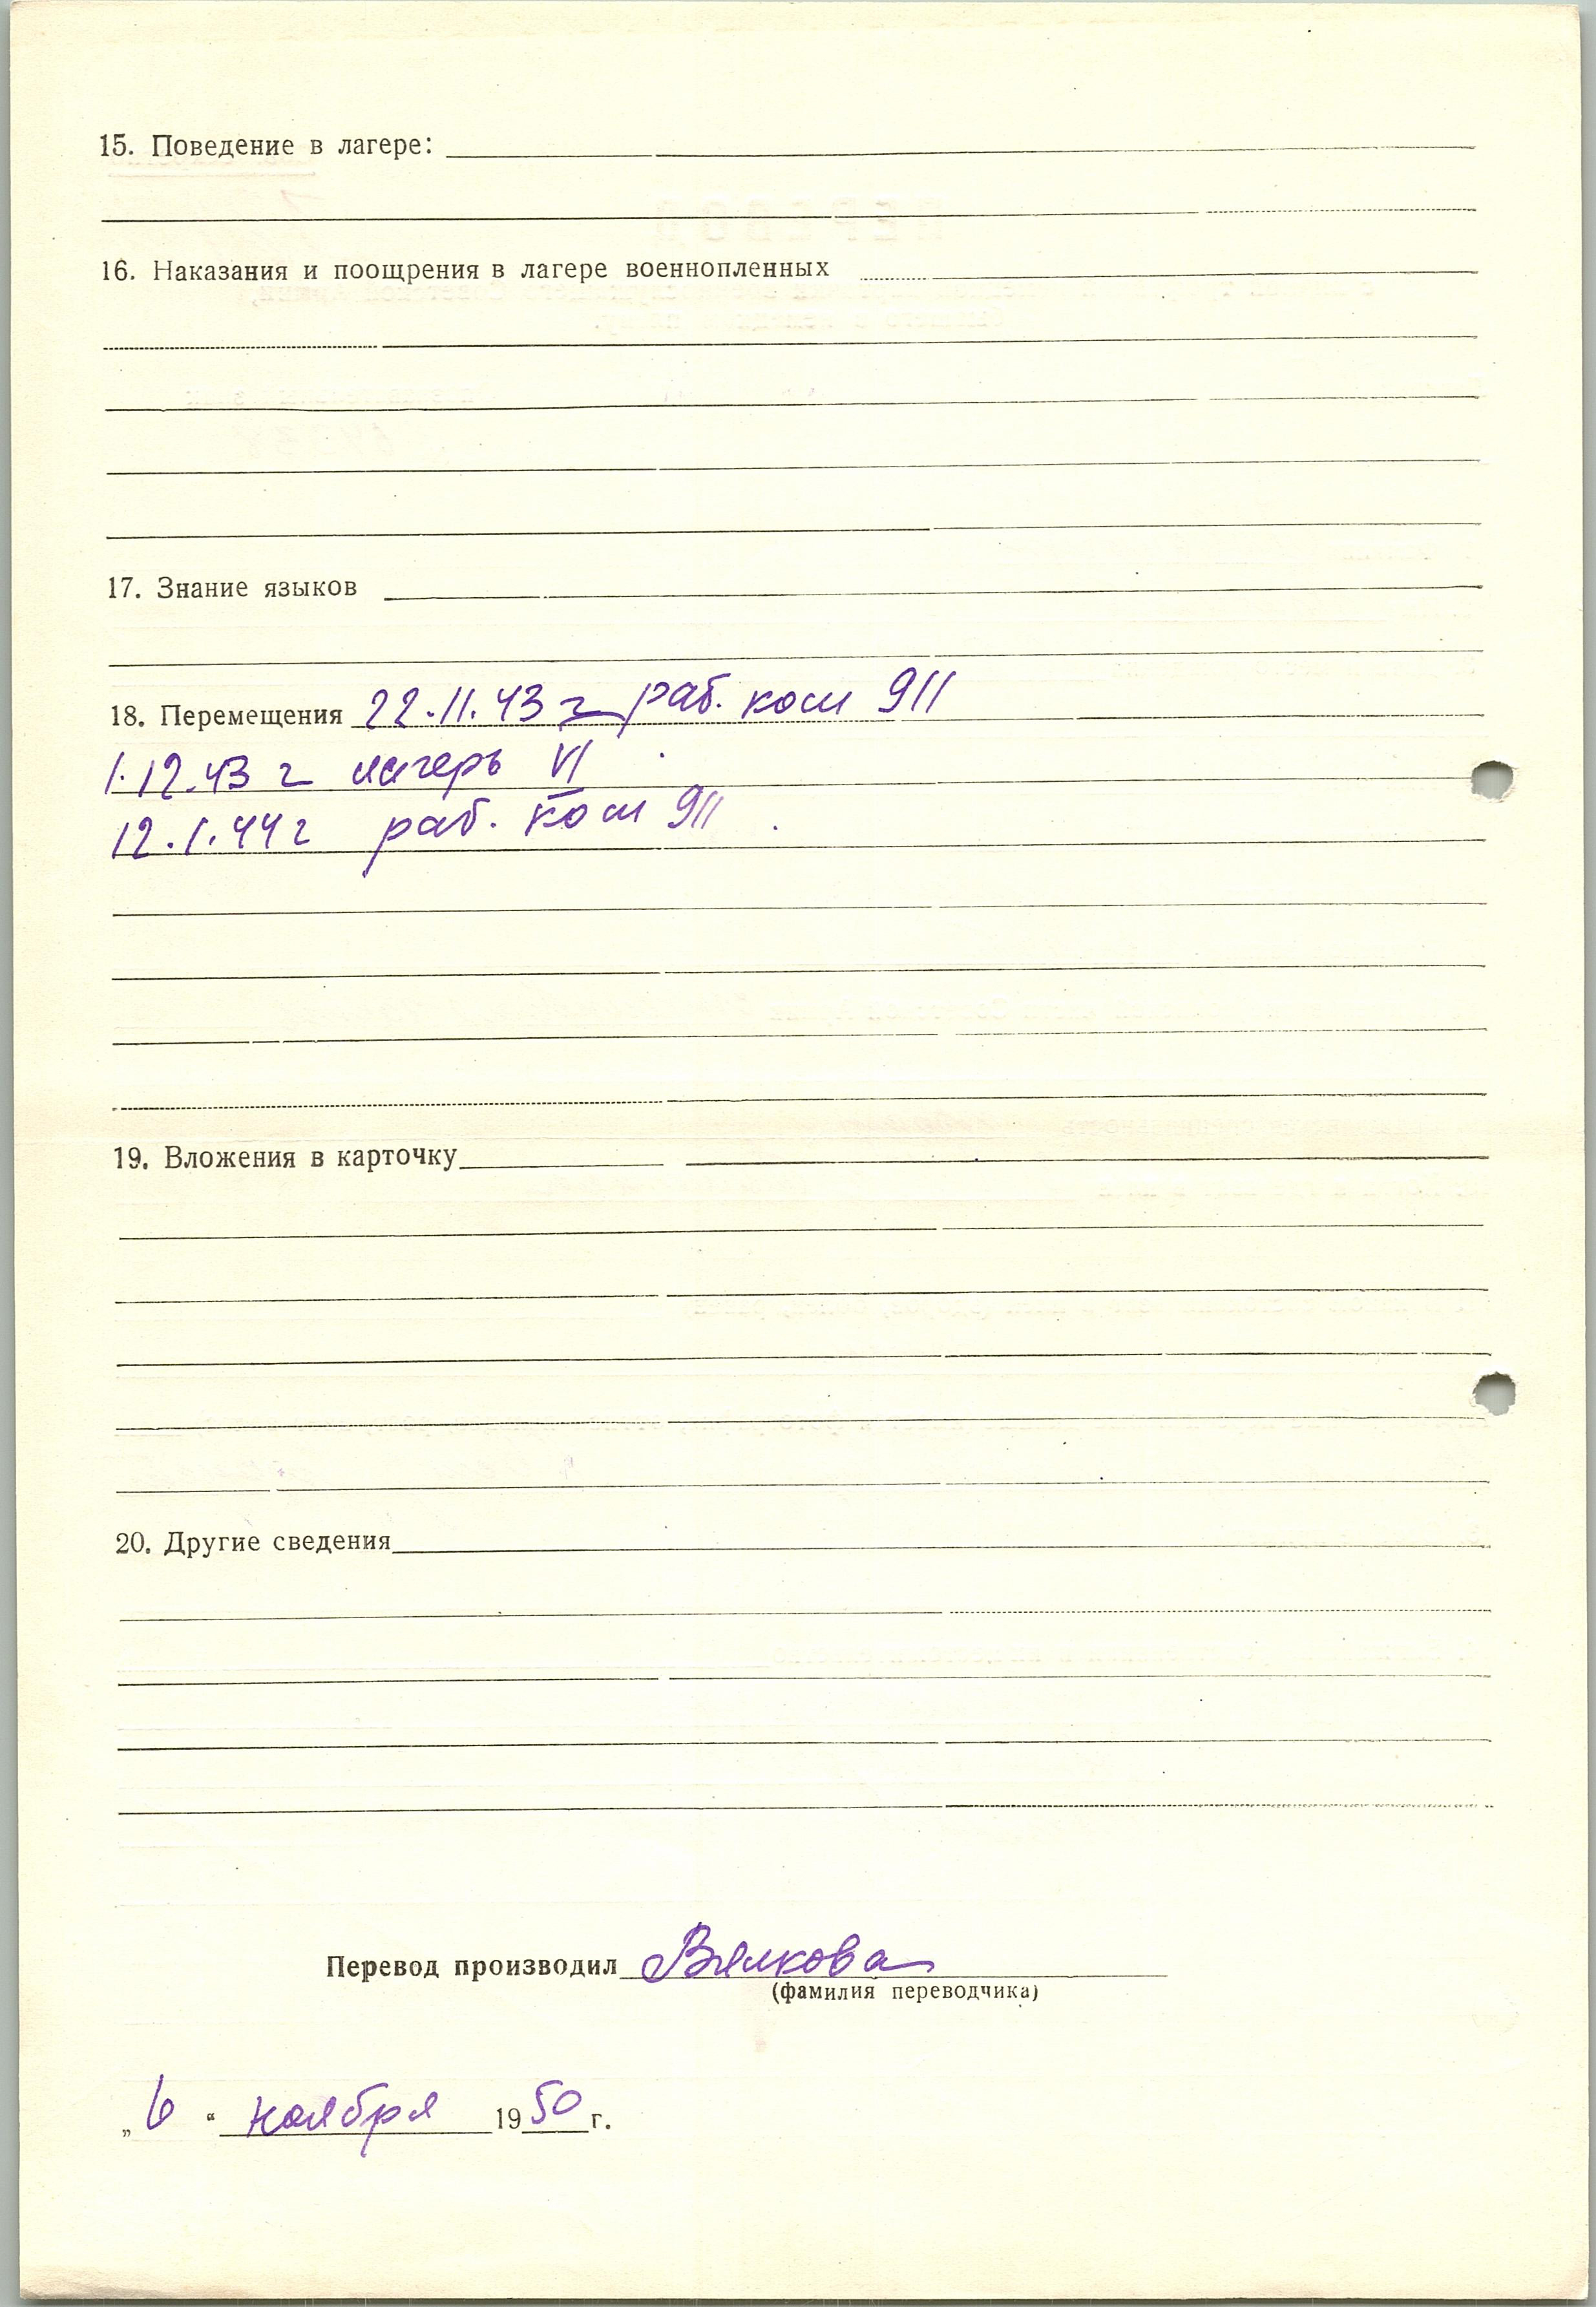 15. Поведение в лагере:
16. Наказания и поощрения в лагере военнопленных
17. Знание языков
18. Перемещения 22.11.43 г раб. ком 911
1.12.43 г лагерь VI
12.1.44 г раб. ком 911
19. Вложения в карточку
20. Другие сведения
Перевод производил Вялкова
(фамилия переводчика)
„6“ ноября 1950 г.